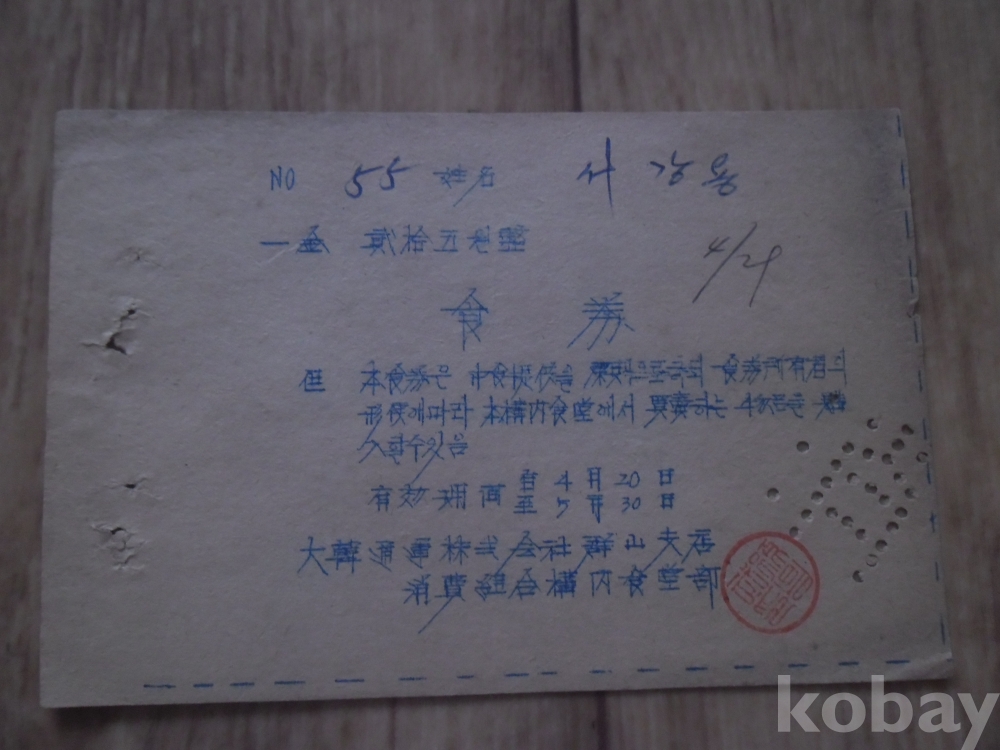 NO 55 姓名 서강용
一金 貳拾五원整
4/21
食券
但 本食券은 中食提供을 原則으로하되 食券所有者의
形便에따라 本構內食堂에서 하는 入할수있음
有効期間 自 4月 20日
至 5月 30日
大韓通運株式会社群山支店
消費組合構內食堂部
kobay